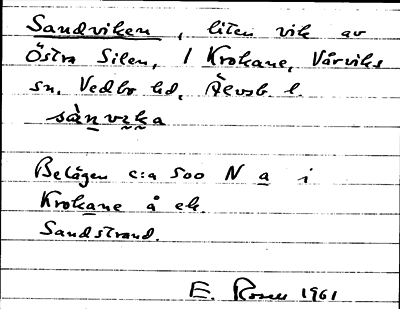 Sandviken, liten vik av
Östra Silen, / Krokane, Vårviks
sn, Vedbo hd, Älvsb. l.
sànvika
Belägen c:a 500 N a i
Krokane å ek.
Sandstrand.
E. Rosell 1961